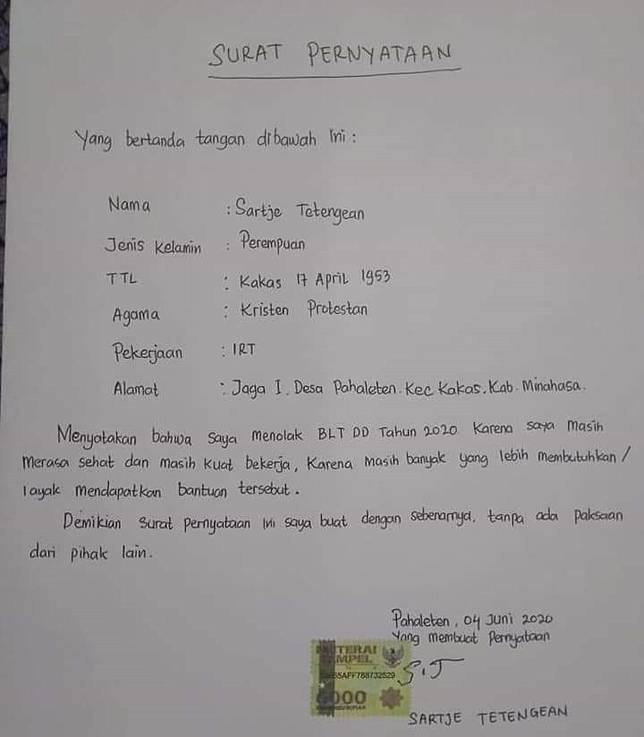 SURAT PERNYATAAN
Yang bertanda tangan dibawah ini :
Nama : Sartje Tetengean
Jenis Kelamin : Perempuan
TTL : Kakas 17 April 1953
Agama : Kristen Protestan
Pekerjaan : IRT
Alamat : Jaga I. Desa Pahaleten. Kec Kakas. Kab. Minahasa.
Menyatakan bahwa saya menolak BLT DD Tahun 2020 Karena saya masih
merasa sehat dan masih kuat bekerja, Karena masih banyak yang lebih membutuhkan /
layak mendapatkan bantuan tersebut.
Demikian surat pernyataan ini saya buat dengan sebenarnya, tanpa ada paksaan
dari pihak lain.
Pahaleten, 04 Juni 2020
Yang membuat Pernyataan
METERAI
TEMPEL
S.T
6000
SARTJE TETENGEAN